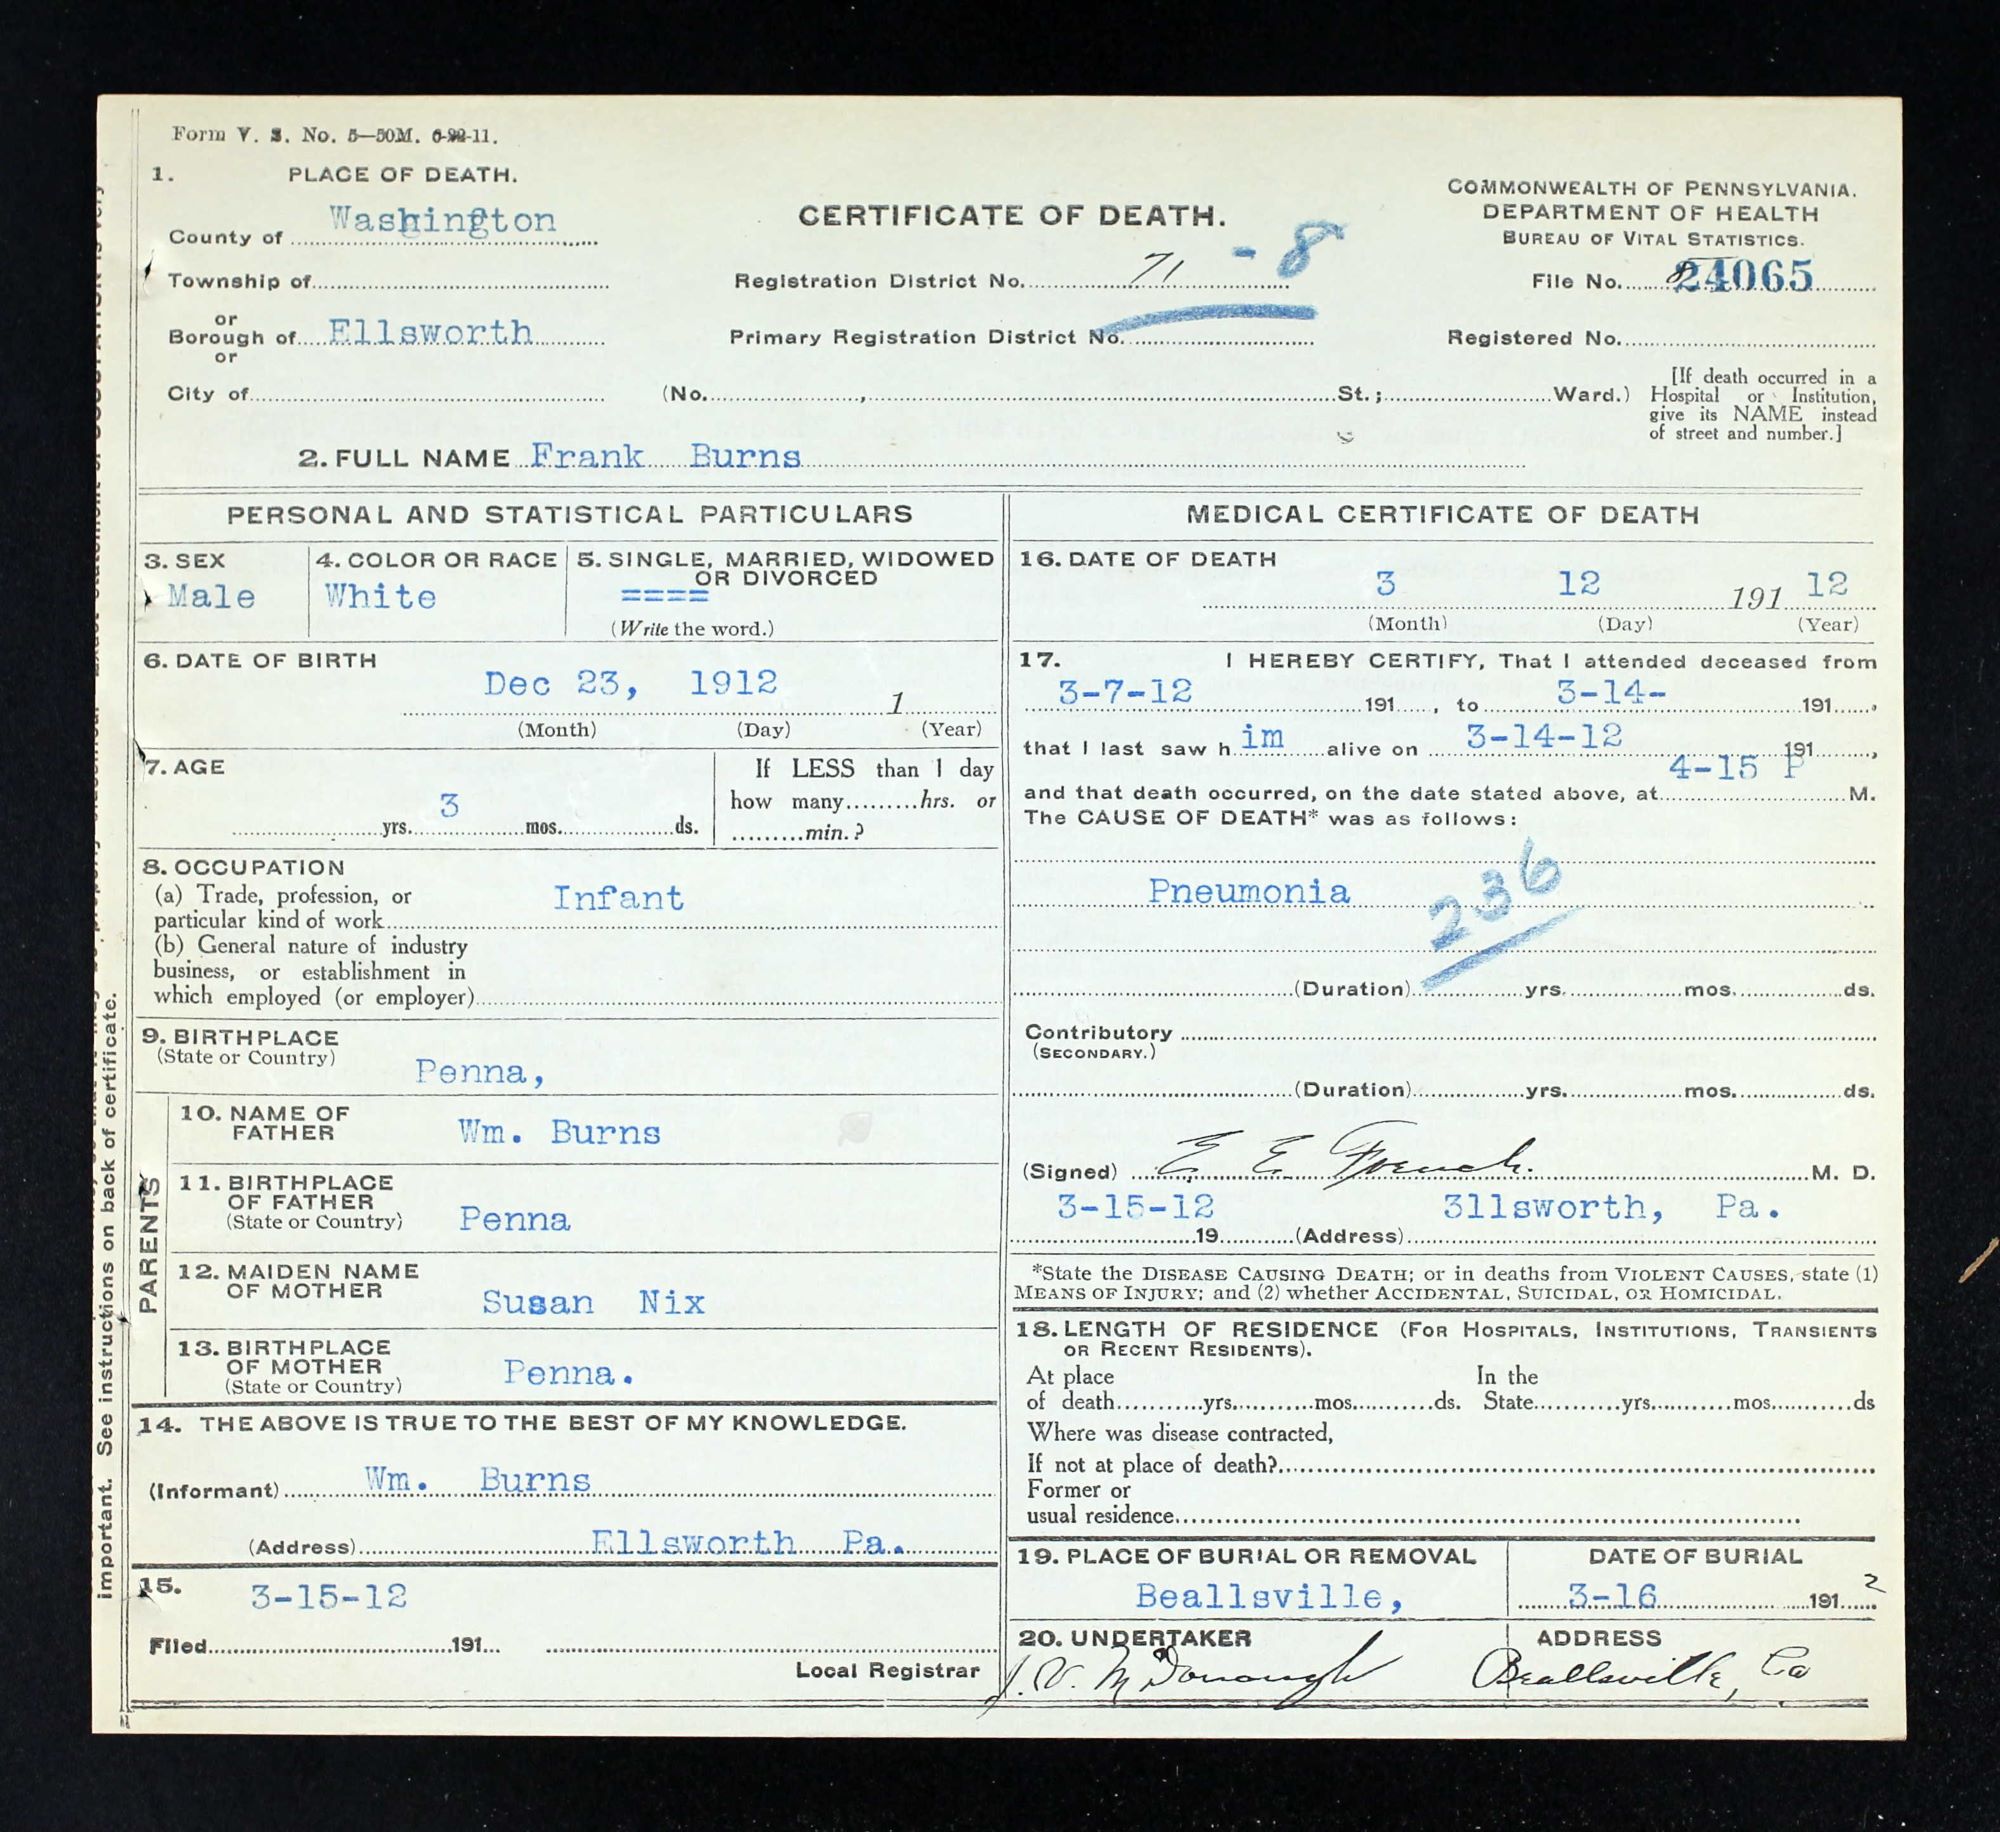 Form V. S. No. 5—50M. 6-22-11.
1. PLACE OF DEATH.
County of Washington
Township of
or
Borough of Ellsworth
or
City of
CERTIFICATE OF DEATH.
Registration District No. 71 - 8
Primary Registration District No.
(No. , St.; Ward.)
COMMONWEALTH OF PENNSYLVANIA.
DEPARTMENT OF HEALTH
BUREAU OF VITAL STATISTICS.
File No. 24065
Registered No.
[If death occurred in a
Hospital or Institution,
give its NAME instead
of street and number.]
2. FULL NAME Frank Burns
PERSONAL AND STATISTICAL PARTICULARS
3. SEX
Male
4. COLOR OR RACE
White
5. SINGLE, MARRIED, WIDOWED
OR DIVORCED
====
(Write the word.)
6. DATE OF BIRTH
Dec 23, 1912 1
(Month) (Day) (Year)
7. AGE
3
yrs. mos. ds.
If LESS than 1 day
how many hrs. or
min.?
8. OCCUPATION
(a) Trade, profession, or
particular kind of work Infant
(b) General nature of industry
business, or establishment in
which employed (or employer)
9. BIRTHPLACE
(State or Country)
Penna,
PARENTS
10. NAME OF
FATHER
Wm. Burns
11. BIRTHPLACE
OF FATHER
(State or Country)
Penna
12. MAIDEN NAME
OF MOTHER
Susan Nix
13. BIRTHPLACE
OF MOTHER
(State or Country)
Penna.
14. THE ABOVE IS TRUE TO THE BEST OF MY KNOWLEDGE.
(Informant) Wm. Burns
(Address) Ellsworth Pa.
15.
3-15-12
Filed 191
Local Registrar
MEDICAL CERTIFICATE OF DEATH
16. DATE OF DEATH
3 12 191 12
(Month) (Day) (Year)
17. I HEREBY CERTIFY, That I attended deceased from
3-7-12 191 , to 3-14- 191 ,
that I last saw h im alive on 3-14-12 191 ,
4-15 P
and that death occurred, on the date stated above, at M.
The CAUSE OF DEATH* was as follows:
Pneumonia
236
(Duration) yrs. mos. ds.
Contributory
(SECONDARY.)
(Duration) yrs. mos. ds.
(Signed) E E French. M. D.
3-15-12 3llsworth, Pa.
19 (Address)
*State the DISEASE CAUSING DEATH; or in deaths from VIOLENT CAUSES, state (1)
MEANS OF INJURY; and (2) whether ACCIDENTAL, SUICIDAL, OR HOMICIDAL.
18. LENGTH OF RESIDENCE (FOR HOSPITALS, INSTITUTIONS, TRANSIENTS
OR RECENT RESIDENTS).
At place In the
of death yrs. mos. ds. State yrs. mos. ds
Where was disease contracted,
If not at place of death?
Former or
usual residence
19. PLACE OF BURIAL OR REMOVAL
Beallsville,
DATE OF BURIAL
3-16 1912
20. UNDERTAKER
J. V. McDonough
ADDRESS
Beallsville, Pa
important. See instructions on back of certificate.